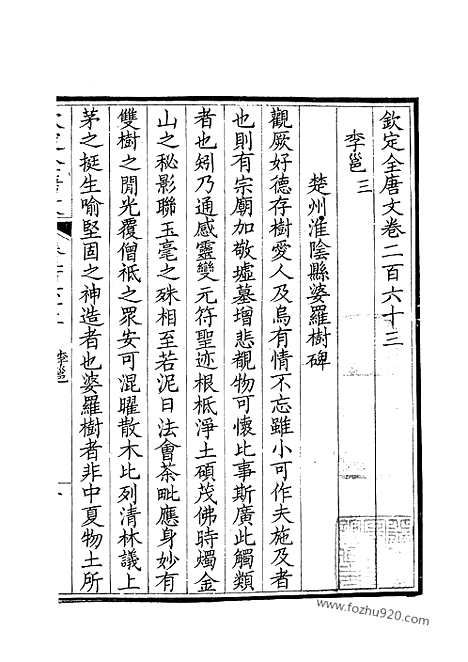 欽定全唐文卷二百六十三
李邕三
楚州淮陰縣婆羅樹碑
觀厥好德存樹愛人及烏有情不忘雖小可作夫施及者
也則有宗廟加敬墟墓增悲覩物可懷比事斯廣此觸類
者也矧乃通感靈變元符聖迹根柢淨土碩茂佛時燭金
山之秘影聯玉毫之殊相至若泥日法會荼毗應身妙有
雙樹之閒光覆僧祇之眾安可混曜散木比列清林議上
茅之挺生喻堅固之神造者也婆羅樹者非中夏物土所
李邕
www.fozhu920.com